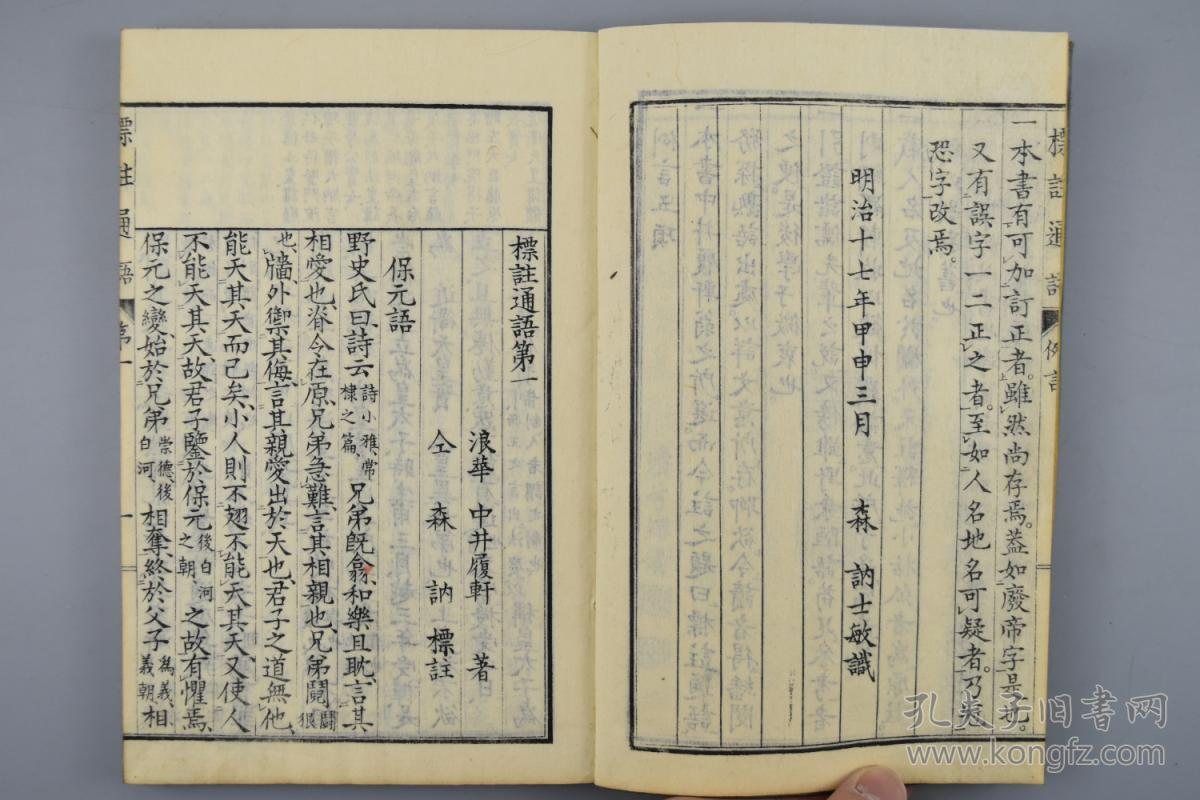 標註通語 例言
一本書有可加訂正者。雖然尚存焉。蓋如廢帝字是也。
又有誤字一二正之者。至如人名地名可疑者。乃
恐字改焉。
明治十七年甲申三月 森 訥士敏識
標註通語第一
浪華 中井履軒 著
仝 森 訥 標註
保元語
野史氏曰、詩云詩小雅常棣之篇、兄弟既翕、和樂且耽、言其
相愛也、脊令在原、兄弟急難、言其相親也、兄弟鬩鬩鬪狠
也、牆外禦其侮、言其親愛出於天也、君子之道無他、
能天其天而已矣、小人則不翅不能天其天、又使人
不能天其天、故君子鑒於保元後白河之朝之故、有懼焉、
保元之變、始於兄弟崇德後白河相奪、終於父子爲義、義朝、相
標註通語 第一 一
孔夫子旧书网
www.kongfz.com